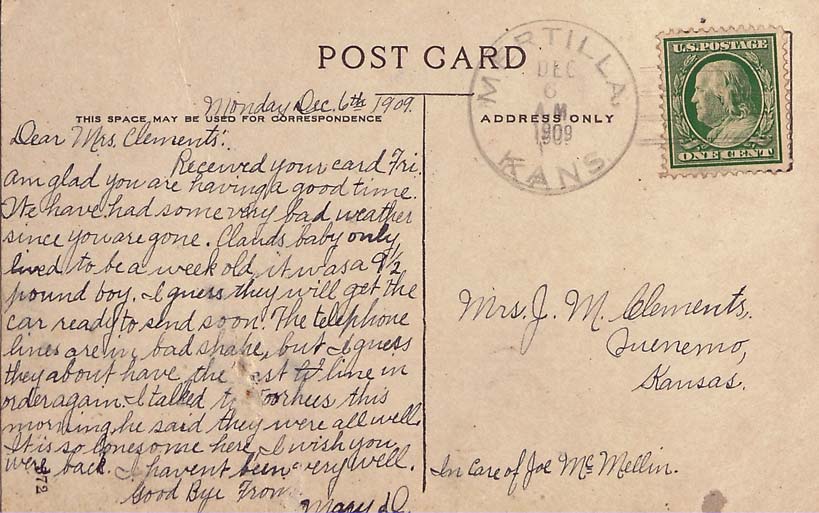 POST CARD
THIS SPACE MAY BE USED FOR CORRESPONDENCE
Monday Dec. 6th 1909.
Dear Mrs. Clements:.
Received your card Fri.
am glad you are having a good time.
We have had some very bad weather
since you are gone. Clauds baby only
lived to be a week old, it was a 9 1/2
pound boy. I guess they will get the
car ready to send soon. The telephone
lines are in bad shape, but I guess
they about have the line in
order again. I talked to Voorhees this
morning he said they were all well.
It is so lonesome here, I wish you
were back. I havent been very well.
Good Bye From
Mary
372
ADDRESS ONLY
MERTILLA
DEC
6
A.M
1909
KANS.
U.S. POSTAGE
ONE CENT
Mrs. J. M. Clements,
Quenemo,
Kansas.
In Care of Joe McMellin.